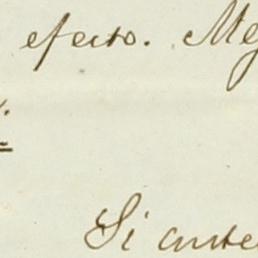 efecto. Me
Si ante